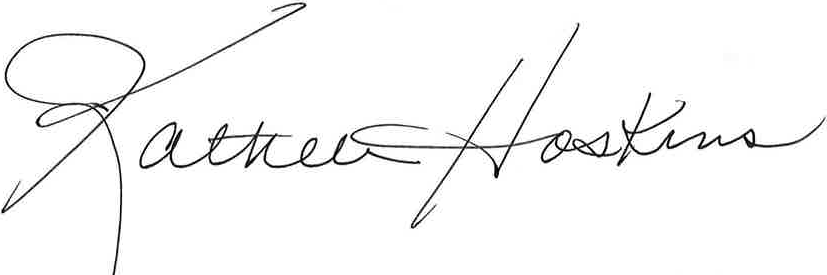 Kathleen Hoskins